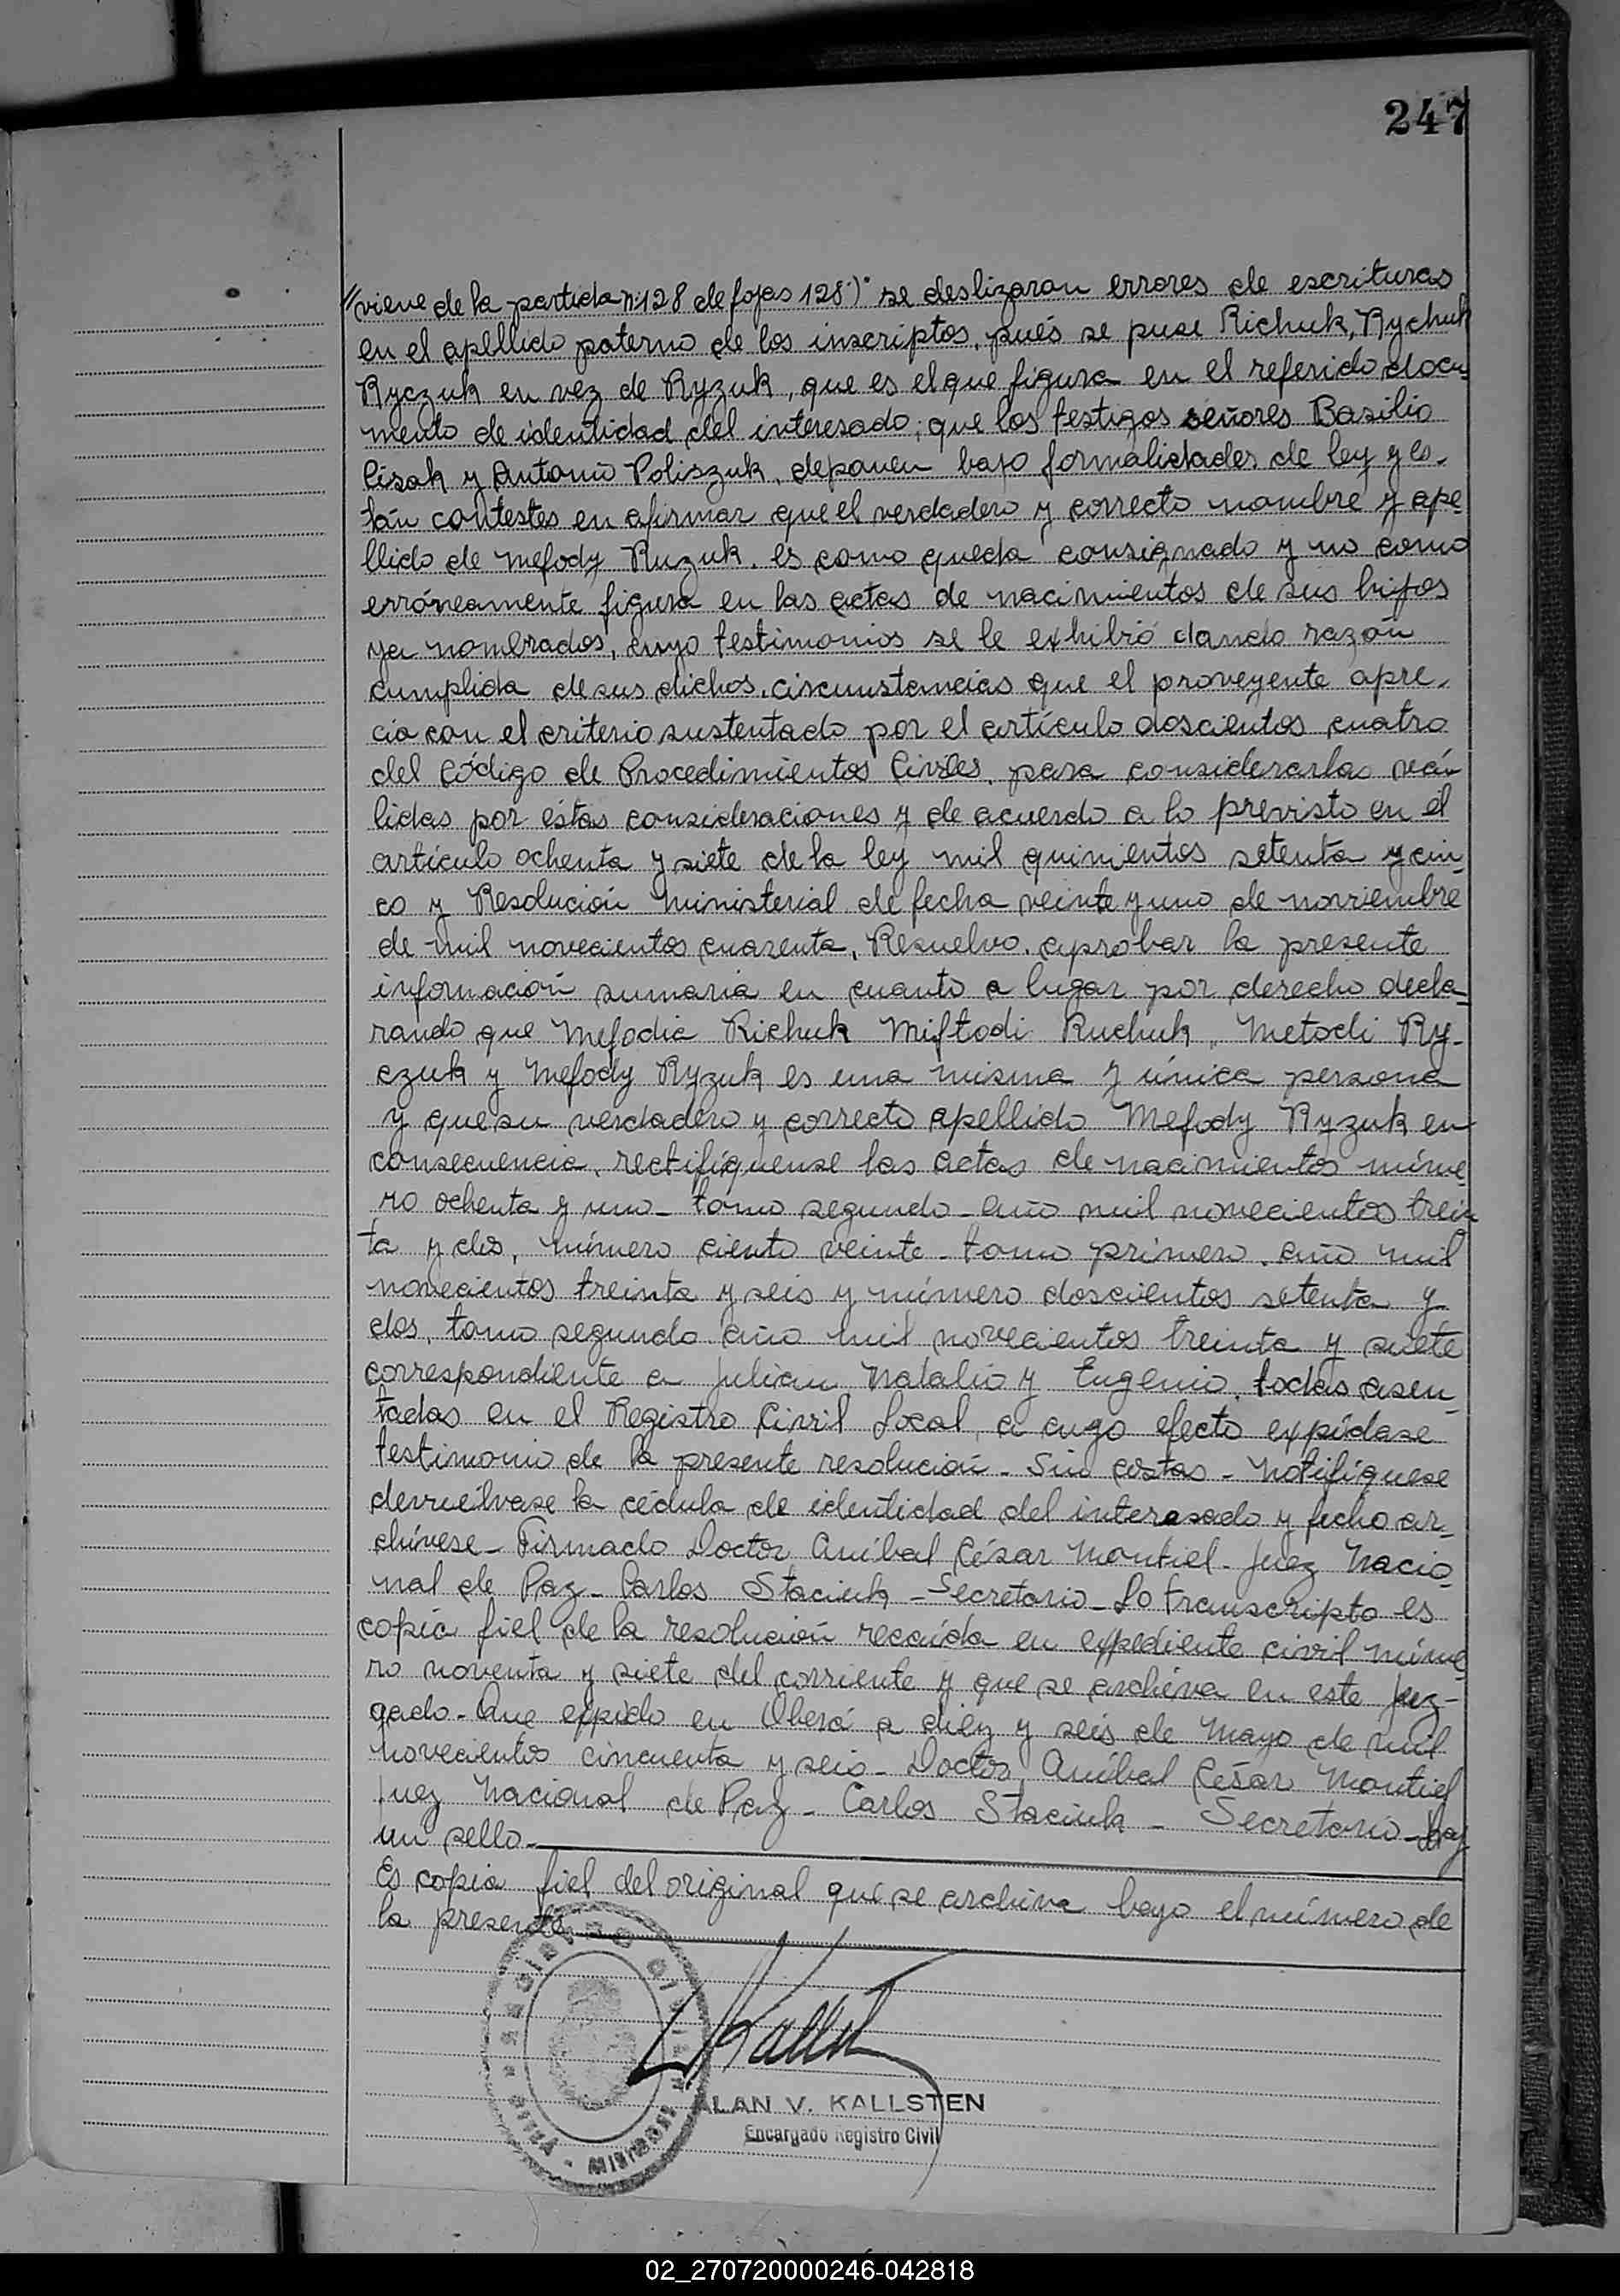 247
//viene de la partida nº 128 de fojas 128)" se deslizaron errores de escrituras
en el apellido paterno de los inscriptos, pués se puse Richuk, Rychuk
Ryczuk en vez de Ryzuk, que es el que figura en el referido docu-
mento de identidad del interesado; que los testigos señores Basilio
Lisak y Antonio Poliszuk, deponen bajo formalidades de ley y es-
tán contestes en afirmar que el verdadero y correcto nombre y ape-
llido de Mefody Ruzuk. es como queda consignado y no como
erróneamente figura en las actas de nacimientos de sus hijos
ya nombrados, cuyo testimonios se le exhibió dando razón
cumplida de sus dichos, circunstancias que el proveyente apre-
cia con el criterio sustentado por el artículo doscientos cuatro
del Código de Procedimientos Civiles, para considerarlas vá-
lidas por éstas consideraciones y de acuerdo a lo previsto en el
artículo ochenta y siete de la ley mil quinientos setenta y cin-
co y Resolución Ministerial de fecha veinte y uno de noviembre
de mil novecientos cuarenta, Resuelvo, aprobar la presente
información sumaria en cuanto a lugar por derecho decla-
rando que Mefodia Richuk Miftodi Ruchuk, Metodi Ry-
czuk y Mefody Ryzuk es una misma y única persona
y que su verdadero y correcto apellido Mefody Ryzuk en
consecuencia, rectifíquense las actas de nacimientos núme-
ro ochenta y uno - tomo segundo - año mil novecientos trein
ta y dos, número ciento veinte - tomo primero, año mil
novecientos treinta y seis y número doscientos setenta y
dos, tomo segundo año mil novecientos treinta y siete
correspondiente a Julian, Natalio y Eugenio, todas asen-
tadas en el Registro Civil Local, a cuyo efecto expídase
testimonio de la presente resolución - Sin costas - Notifíquese
devuélvase la cédula de identidad del interesado y fecho ar-
chívese - Firmado Doctor Aníbal César Montiel - Juez Nacio-
nal de Paz - Carlos Staciuk - Secretario - Lo transcripto es
copia fiel de la resolución recaída en expediente civil núme-
ro noventa y siete del corriente y que se archiva en este Juz-
gado - Que expido en Oberá a diez y seis de Mayo de mil
novecientos cincuenta y seis - Doctor Aníbal César Montiel
Juez Nacional de Paz - Carlos Staciuk - Secretario - Hay
un sello -
Es copia fiel del original que se archiva bajo el número de
la presente
REGISTRO CIVIL
MISIONES
ALAN V. KALLSTEN
Encargado Registro Civil
02_270720000246-042818